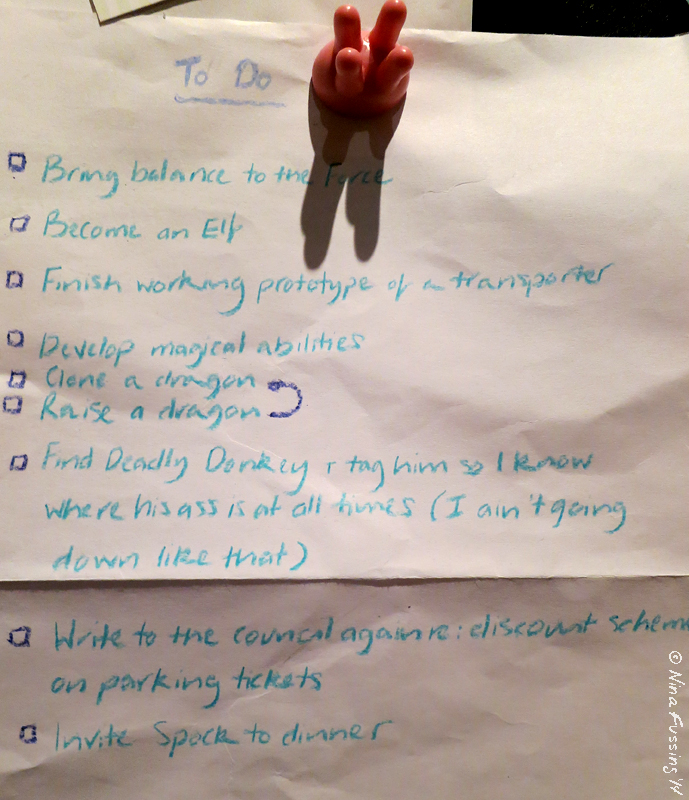 To Do
Bring balance to the Force
Become an Elf
Finish working prototype of a transporter
Develop magical abilities
Clone a dragon
Raise a dragon
Find Deadly Donkey + tag him so I know
where his ass is at all times (I ain't going
down like that)
Write to the council again re: discount scheme
on parking tickets
Invite Spock to dinner
© Nina Fussing '14